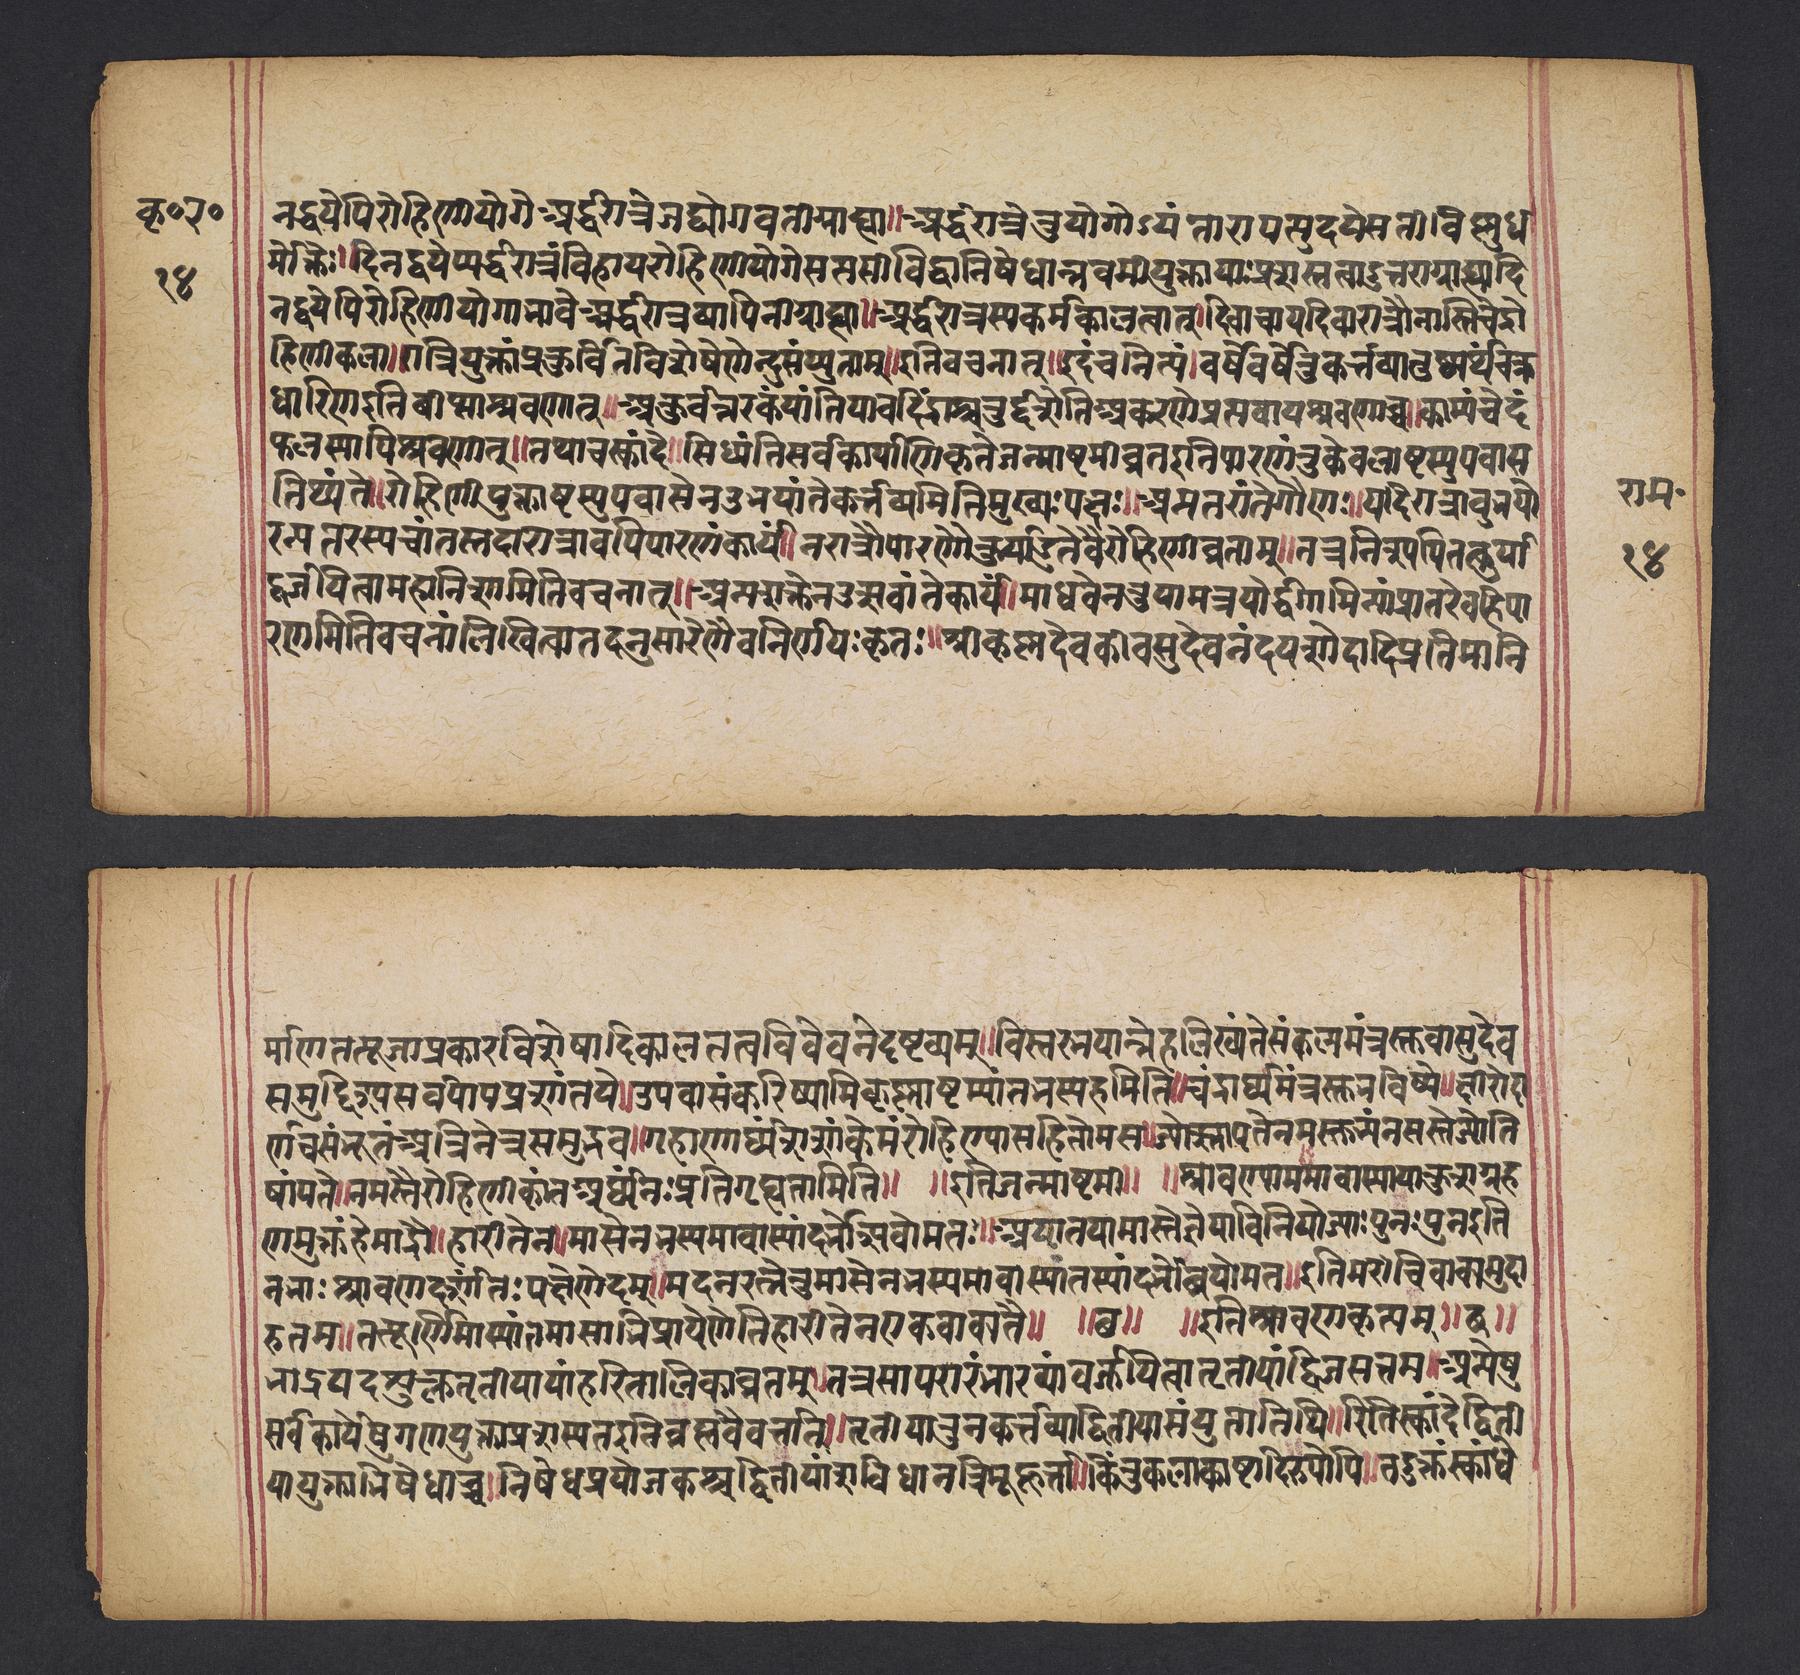 कृ०र०
१४
नद्वयेपिरोहिणीयोगेअर्द्धरात्रेजद्योगवतीग्राह्या॥अर्द्धरात्रेतुयोगोऽयं तारापत्युदयेसतीविष्णुध
र्मोक्तेः॥दिनद्वयेप्यर्द्धरात्रंविहायरोहिणीयोगेसप्तमीविद्धानिषेधान्नवमीयुक्तायाःप्रशस्तत्वाउत्तराग्राह्यादि
नद्वयेपिरोहिणीयोगाभावेअर्द्धरात्रव्यापिनीग्राह्या॥अर्द्धरात्रस्यकर्मकालत्वात्।दिवावायदिवारात्रौनास्तिचेद्रो
हिणीकला॥रात्रियुक्तांप्रकुर्वितविशेषेणेन्दुसंयुताम्॥इतिवचनात्॥इदंचनित्यं।वर्षेवर्षेतुकर्त्तव्यातुष्ट्यर्थंचक्र
धारिणइतिवीप्साश्रवणात्॥अकुर्वन्नरकंयांतियावदिंद्राश्चतुर्द्दशेतिअकरणेप्रत्यवायश्रवणाच्च॥काम्यंचेदं
फलस्यापिश्रवणात्॥तथाचस्कांदे॥सिध्यंतिसर्वकार्याणिकृतेजन्माष्टमीव्रतइतिपारणंतुकेवलाष्टम्युपवास
तिथ्यंते॥रोहिणीयुक्ताष्टम्युपवासेतउभयांतेकर्त्तव्यमितिमुख्यःपक्षः॥अन्यतरांतेगौणः॥यदिरात्रावुभयो
रन्यतरस्यचांतस्तदारात्रावपिपारणंकार्यं॥नरात्रौपारणंकुर्यादृतेवैरोहिणीव्रताम्॥तत्रनिश्यपितत्कुर्या
द्वर्जयित्वामहानिशामितिवचनात्॥अन्यशक्तेनउत्सवांतेकार्यं॥माधवेनतुयामत्रयोर्द्धगामिन्यांप्रातरेवहिपा
रणमितिवचनंलिखित्वातदनुसारेणैवनिर्णयःकृतः॥श्रीकृष्णदेवकीवसुदेवनंदयशोदादिप्रतिमानि
राम॰
१४
र्माणतत्पूजाप्रकारविशेषादिकालतत्वविवेचनेद्रष्टव्यम्॥विस्तरभयान्नेहलिख्यतेसंकल्पमंत्रस्तुवासुदेव
समुद्दिश्यसर्वपापप्रशांतये॥उपवासंकरिष्यामिकृष्णाष्टम्यांनभस्यहमिति॥चंद्रार्घ्यमंत्रस्तुभविष्ये॥क्षीरोदा
र्णवसंभूतंअत्रिनेत्रसमुद्भव॥गृहाणार्घ्यंशशांकेमंरोहिण्यासहितोमम॥ज्योत्स्नापतेनमस्तुभ्यंनमस्तेज्योति
षांपते॥नमस्तेरोहिणीकांतअर्घ्यंनःप्रतिगृह्यतामिति॥ ॥इतिजन्माष्टमी॥ ॥श्रावण्याममावास्यायांकुशग्रह
णमुक्तंहेमाद्रौ॥हारीतेन॥मासेनभस्यमावास्यांदर्भोत्सवोमतः॥अयातयामास्तेज्ञेयाविनियोज्याःपुनःपुनइति
नभाः श्रावणदर्शांतः पक्षेणेदम्॥मदनरत्नेतुमासेनभस्यमावास्यांतस्यांदर्भोच्चयोमत॥इतिमरीचिवाक्यमुदा
हृतम्॥तत्पूर्णिमास्यांतमासाभिप्रायेणेतिहारीतेनएकवाक्यतै॥ ॥छ॥ ॥इतिश्रावणकृत्यम्॥छ॥
भाद्रपदशुक्लतृतीयायांहरितालिकाव्रतम्॥तत्रसापरारंभारव्यांवर्जयित्वातृतीयांद्विजसत्तम॥अन्येषु
सर्वकार्येषुगणयुक्ताप्रशस्यतइतिब्रह्मवैवर्त्तात्॥तृतीयातुनकर्त्तव्याद्वितीयासंयुतातिथि॥रितिस्कांदेद्विती
यायुक्तानिषेधाच्च॥निषेधप्रयोजकश्चद्वितीयांशोविधानत्रिमूहूर्त्ता॥किंतुकलाकाष्टादिरूपोपि॥तदुक्तंस्कांधे